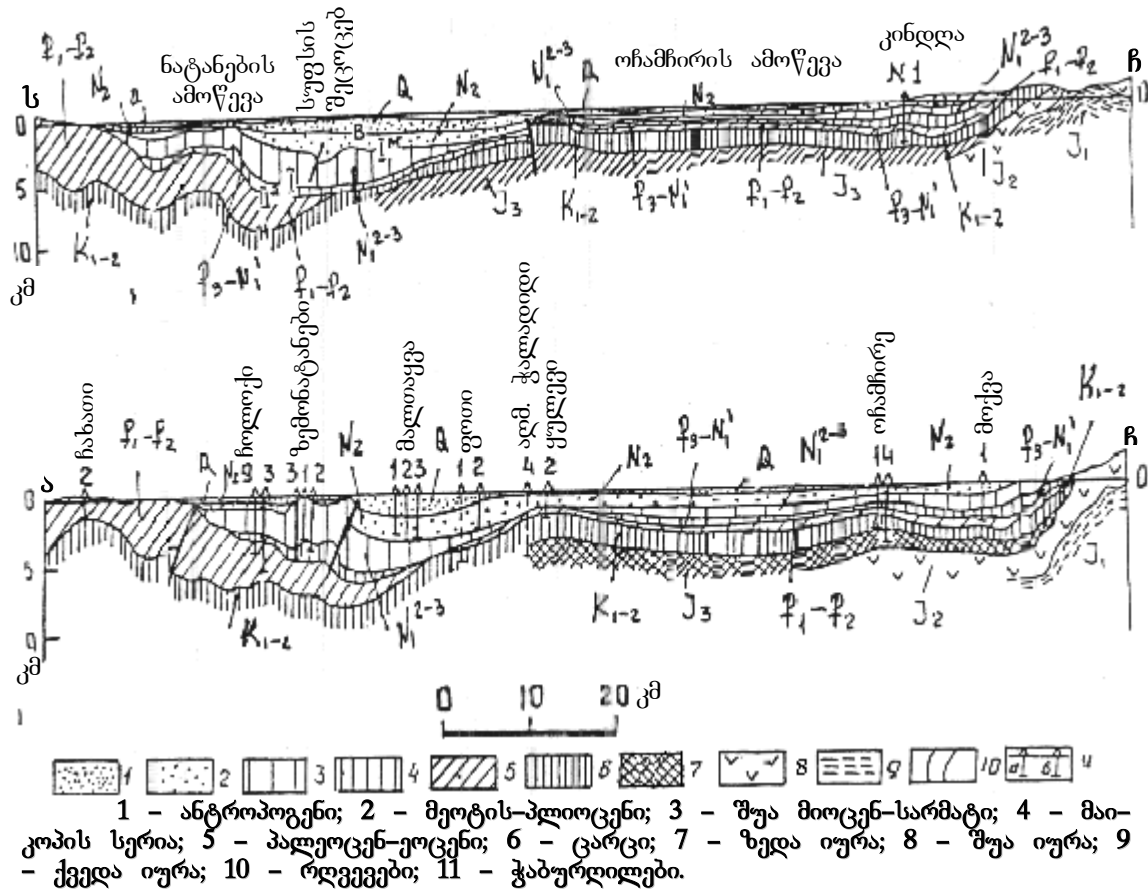 ნატანების
ამოწევა
სუფსის
შეცოცებ
ოჩამჩირის ამოწევა
კინდღა
P₁-P₂
N₂
Q
Q
N₂
N₁²⁻³
Q
N₂
N1
N₁²⁻³
P₁-P₂
ს
ჩ
0
0
5
10
კმ
B
K₁₋₂
P₃-N₁¹
P₁-P₂
N₁²⁻³
J₃
K₁₋₂
P₃-N₁¹
P₁-P₂
J₃
P₃-N₁¹
K₁₋₂
J₂
J₁
ჩახათი
ჩოლოქი
ზემონატანები
მალთაყვა
ფოთი
აღმ. ჭალადიდი
ყულევი
ოჩამჩირე
მოქვა
K₁₋₂
2
P₁-P₂
Q
N₂
9 3
3 1 2
N₂
1 2 3
Q
1 2
4 2
N₂
P₃-N₁¹
Q
N₁²⁻³
14
N₂
1
P₃-N₁¹
ა
ჩ
0
0
5
კმ
K₁₋₂
N₁²⁻³
K₁₋₂
J₃
P₁-P₂
J₂
J₁
0 10 20 კმ
1 2 3 4 5 6 7 8 9 10 11
1 – ანტროპოგენი; 2 – მეოტის–პლიოცენი; 3 – შუა მიოცენ–სარმატი; 4 – მაი–
კოპის სერია; 5 – პალეოცენ–ეოცენი; 6 – ცარცი; 7 – ზედა იურა; 8 – შუა იურა; 9
– ქვედა იურა; 10 – რღვევები; 11 – ჭაბურღილები.